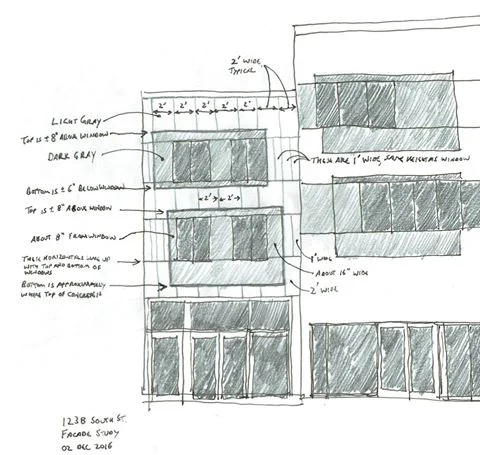 2' WIDE
TYPICAL
2' 2' 2' 2' 2'
LIGHT GRAY
TOP IS ± 8" ABOVE WINDOW
DARK GRAY
THESE ARE 1' WIDE, SAME HEIGHT AS WINDOW
BOTTOM IS ± 6" BELOW WINDOW
2' 2'
TOP IS ± 8" ABOVE WINDOW
ABOUT 8" FROM WINDOW
1' WIDE
THESE HORIZONTALS LINE UP
WITH TOP AND BOTTOM OF
WINDOWS
ABOUT 16" WIDE
BOTTOM IS APPROXIMATELY
WHERE TOP OF CONCRETE IS
2' WIDE
123B SOUTH ST.
FACADE STUDY
02 DEC 2016